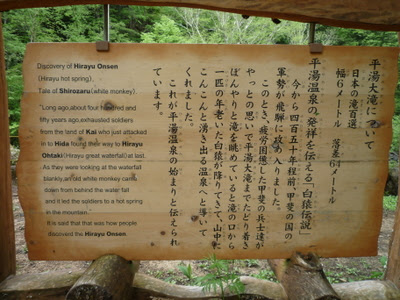 Discovery of Hirayu Onsen
(Hirayu hot spring),
Tale of Shirozaru(white monkey).
"Long ago,about four hundred and
fifty years ago,exhausted soldiers
from the land of Kai who just attacked
in to Hida found their way to Hirayu
Ohtaki(Hirayu great waterfall)at last.
As they were looking at the waterfall
blankly,an old white monkey came
down from behind the water fall
and it led the soldiers to a hot spring
in the mountain."
It is said that this was how people
discoverd the Hirayu Onsen
平湯大滝について
日本の滝百選
幅6メートル 落差64メートル
平湯温泉の発祥を伝える「白猿伝説」
今から四百五十年程前、甲斐の国の
軍勢が飛騨に攻め入りました。
このとき、疲労困憊した甲斐の兵士達が
やっとの思いで平湯大滝までたどり着き
ぼんやりと滝を眺めていると滝の口から
一匹の年老いた白猿が降りてきて、山中に
こんこんと湧き出る温泉へと導いて
くれました。
これが平湯温泉の始まりと伝えられ
ています。